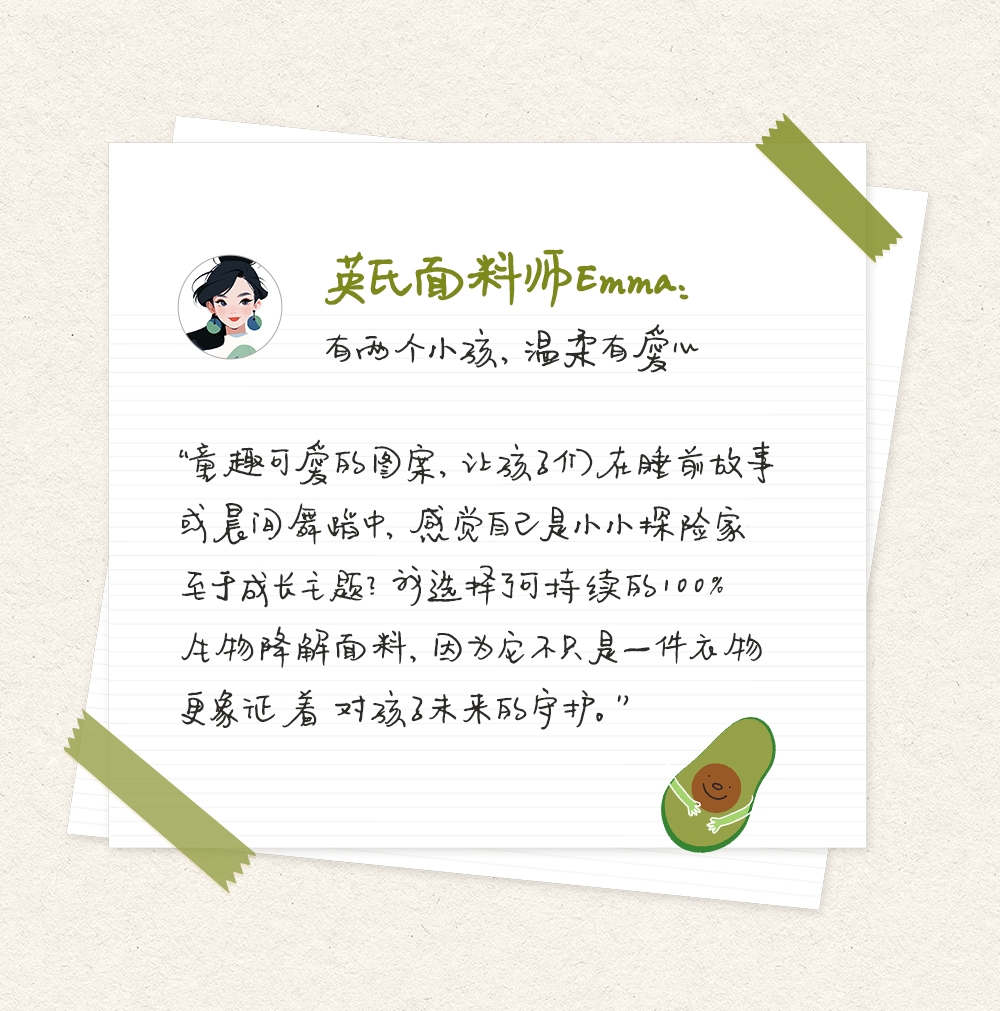 英氏面料师Emma:
有两个小孩,温柔有爱心
“童趣可爱的图案,让孩子们在睡前故事
或晨间舞蹈中,感觉自己是小小探险家
至于成长主题?我选择了可持续的100%
生物降解面料,因为它不只是一件衣物
更象证着 对孩子未来的守护。”